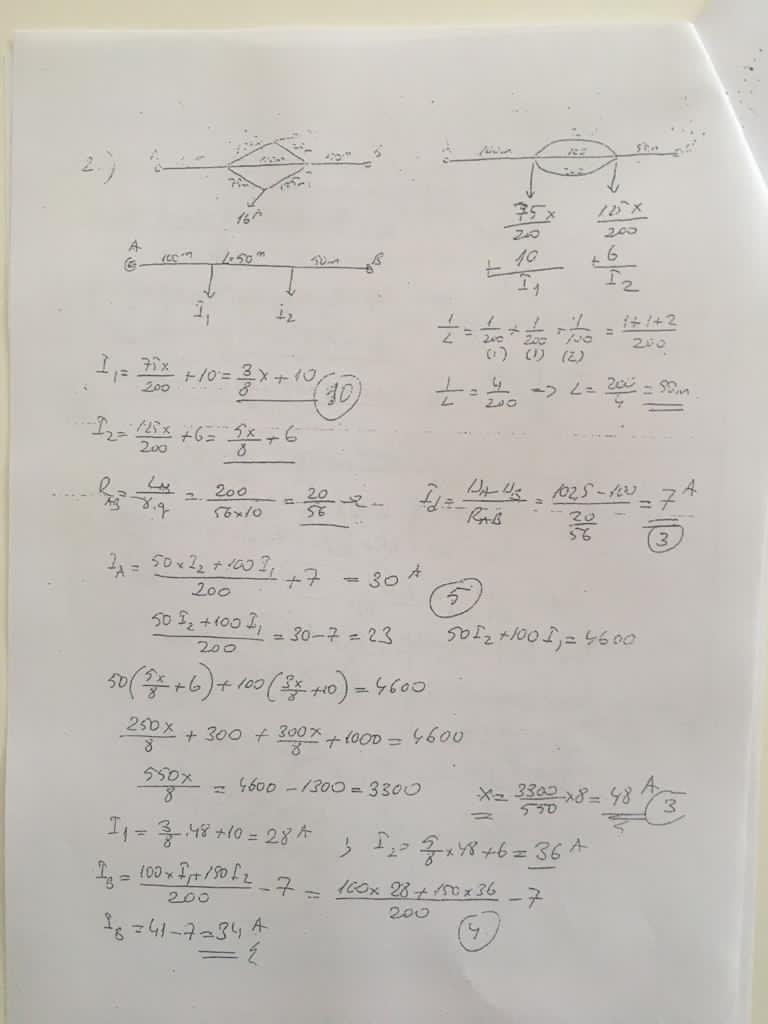 2.)
100m 50m
75m 125m
16A
75x/200 125x/200
+ 10 + 6
I1 I2
A B
100m L=50m 50m
I1 i2
1/L = 1/200 + 1/200 + 1/100 = 1+1+2/200
(1) (1) (2)
I1 = 75x/200 + 10 = 3/8 x + 10 10
1/L = 4/200 -> L = 200/4 = 50m
I2 = 125x/200 + 6 = 5x/8 + 6
RAB = LAB/γ.q = 200/56x10 = 20/56 Id = UA-UB/RAB = 102,5-100/20/56 = 7A
3
IA = 50xI2+100I1/200 + 7 = 30A
5
50I2+100I1/200 = 30-7 = 23 50I2+100I1 = 4600
50(5x/8+6)+100(3x/8+10) = 4600
250x/8 + 300 + 300x/8 + 1000 = 4600
550x/8 = 4600-1300 = 3300 x = 3300/550 x8 = 48A 3
I1 = 3/8 .48+10 = 28A ; I2 = 5/8 x48+6 = 36A
IB = 100xI1+150I2/200 - 7 = 100x28+150x36/200 - 7
IB = 41-7 = 34A 4